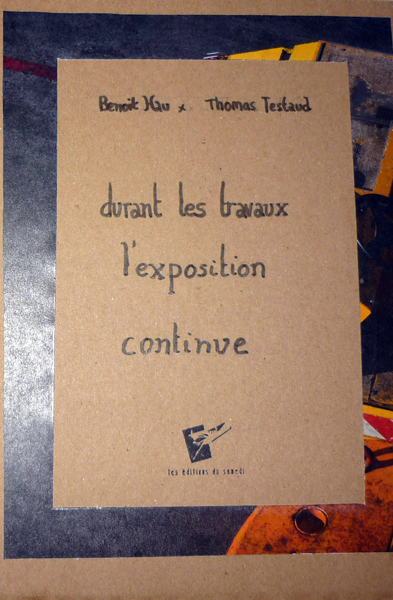 Benoit Hau x Thomas Testaud
durant les travaux
l'exposition
continue
les éditions du samedi